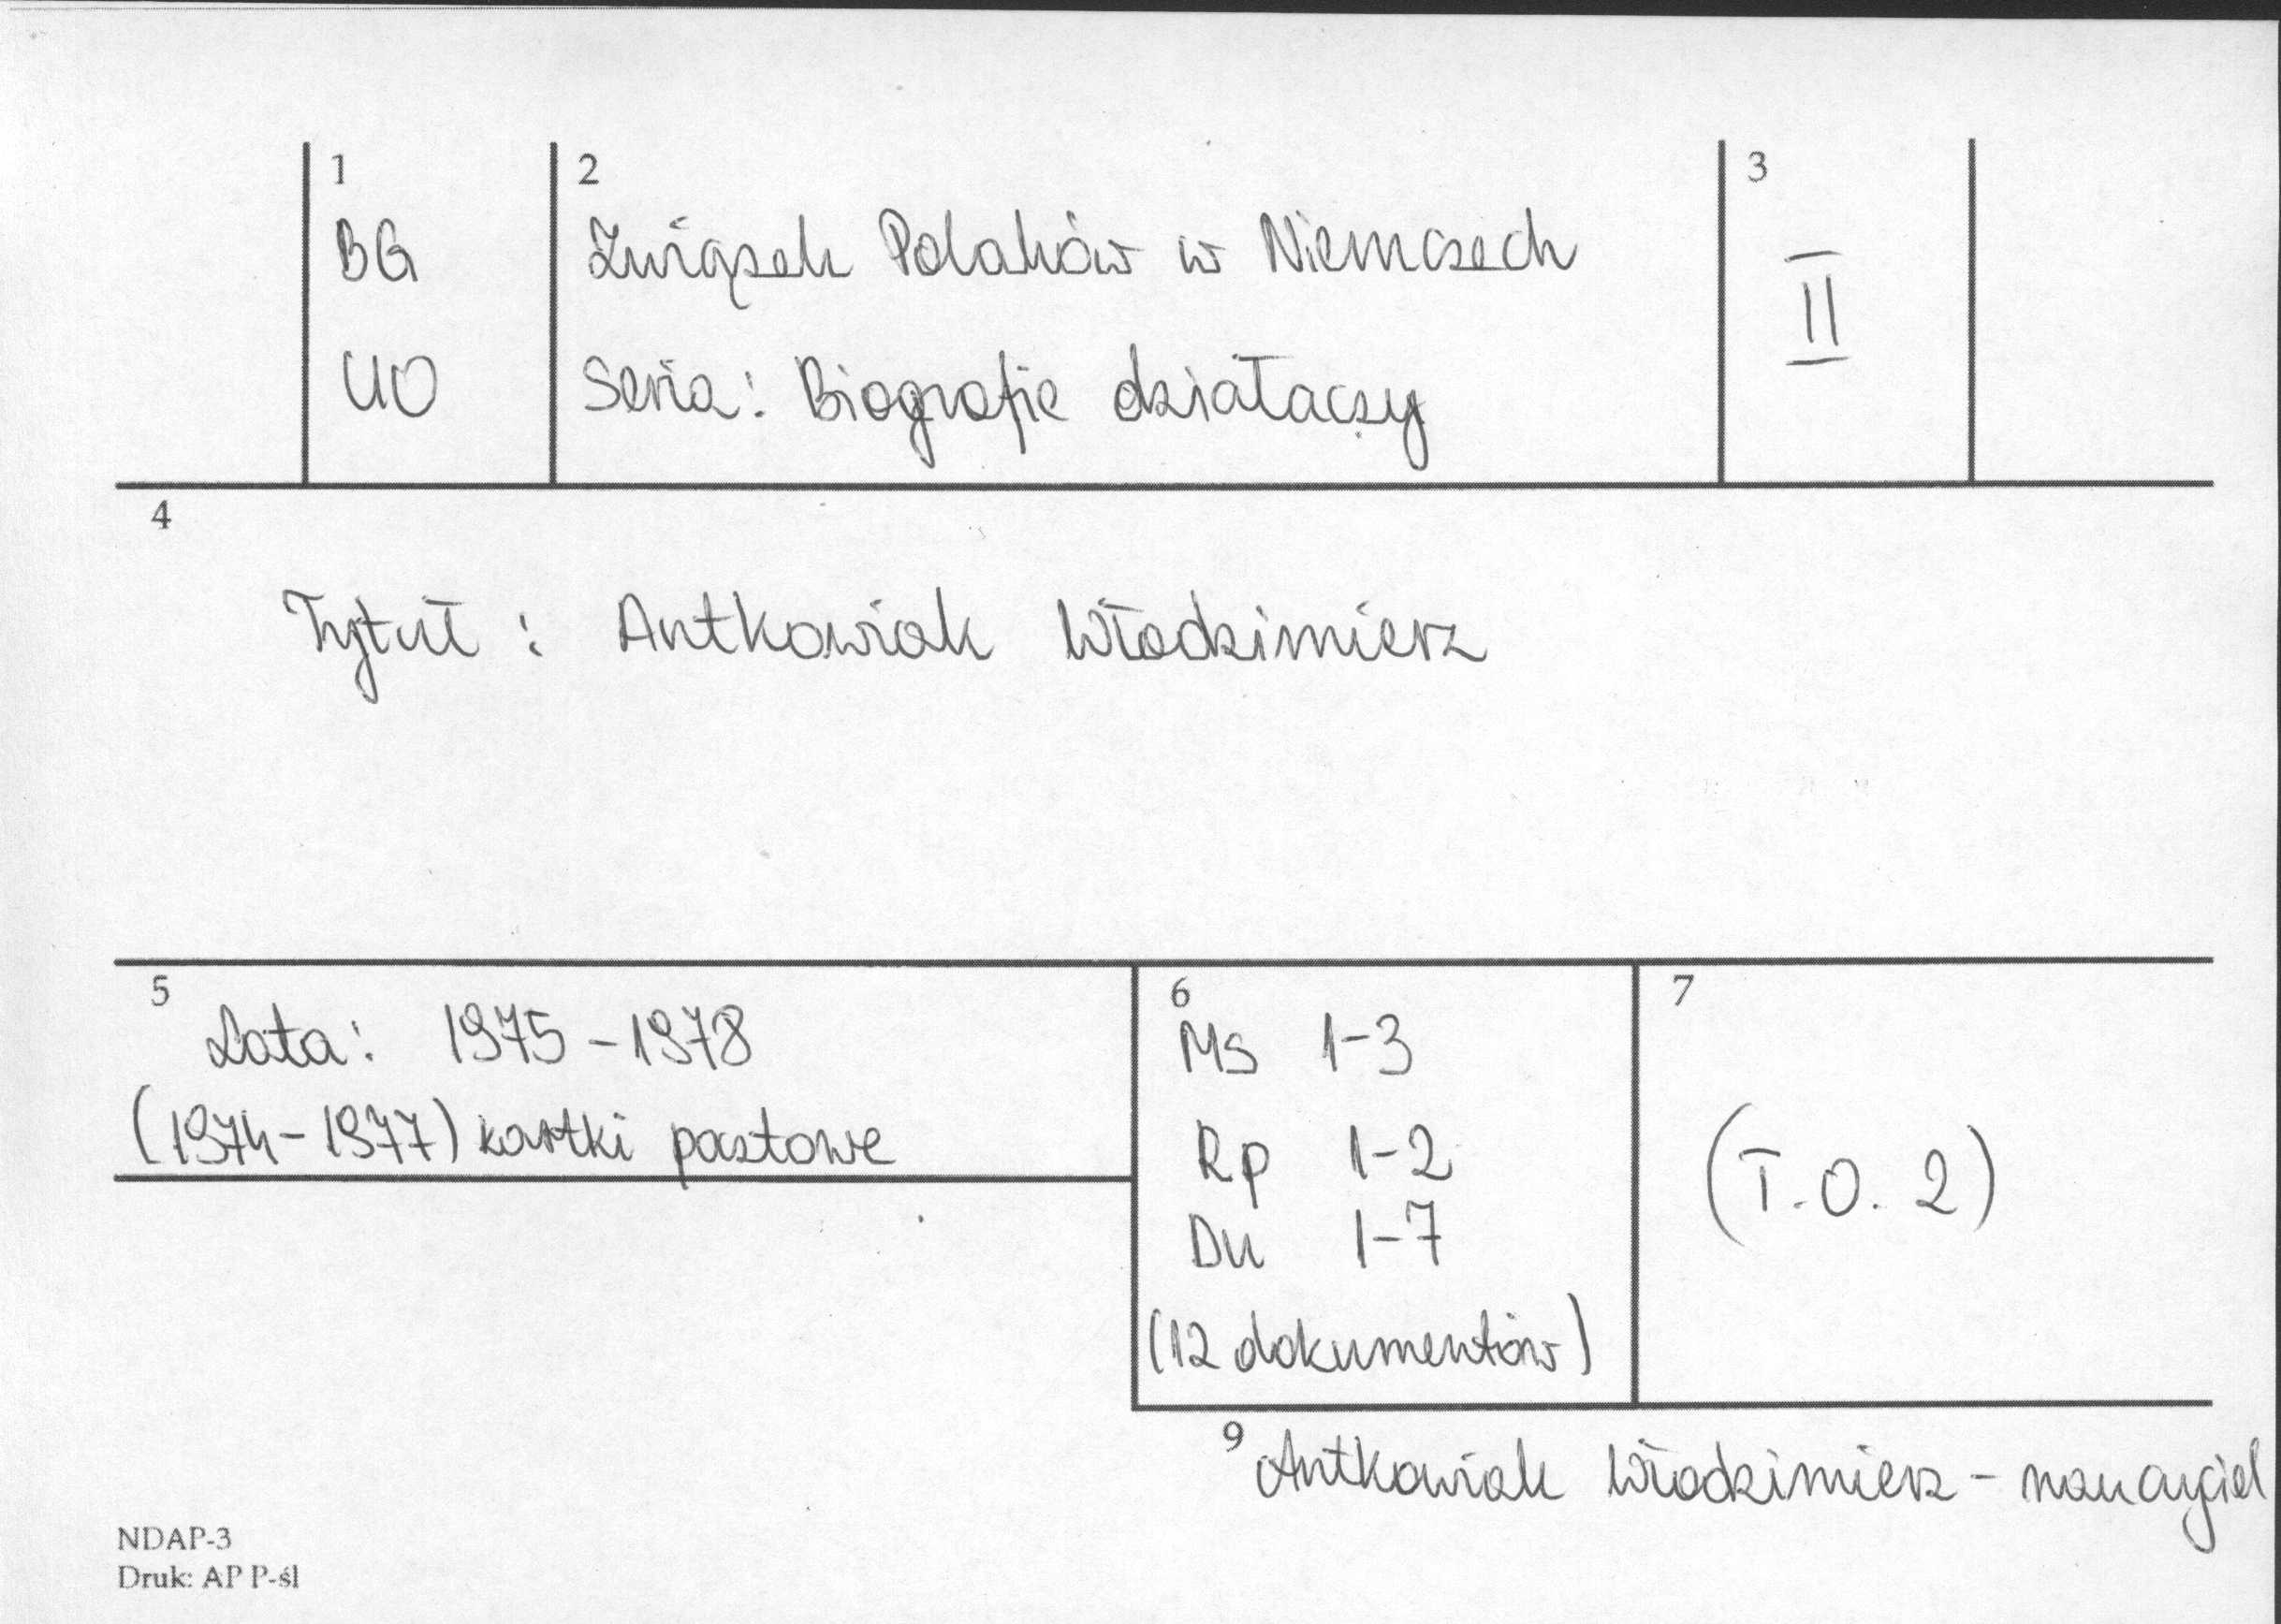 1
BG
UO
2
Związek Polaków w Niemczech
Seria: Biografie działaczy
3
II
4
Tytuł : Antkowiak Włodzimierz
5
Data: 1975-1978
(1974-1977) kartki pocztowe
6
Ms 1-3
Rp 1-2
Du 1-7
(12 dokumentów)
7
(T.O. 2)
9
Antkowiak Włodzimierz - nauczyciel
NDAP-3
Druk: AP P-śl